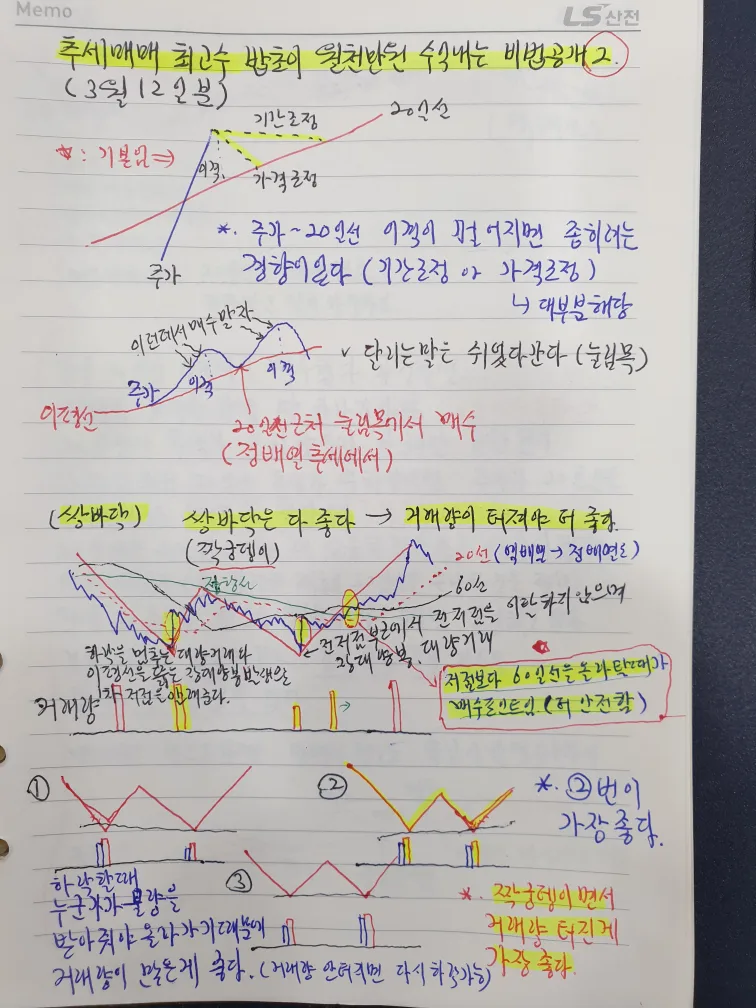 Memo
LS산전
추세매매 최고수 밥초이 월천만원 수익내는 비법공개 2.
(3월 12일분)
기간조정
20일선
*: 기본임⇒
이격.
가격조정
주가
*. 주가~20일선 이격이 멀어지면 좁히려는
경향이 있다 (기간조정 or 가격조정)
↳ 대부분 해당
이런데서 매수말자
이격
이격
주가
이평선
✓ 달리는 말은 쉬었다 간다 (눌림목)
20일선근처 눌림목에서 매수
(정배열추세에서)
(쌍바닥) 쌍바닥은 다 좋다 → 거래량이 터져야 더 좋다.
(짝궁뎅이)
저항선
20선 (역배열→정배열)
60선
←전저점부근에서 전저점을 이탈하지 않으며
장대양봉, 대량거래
하락을 멈추는 대량거래와
이평선을 뚫는 장대양봉발생은
1차 저점을 암시한다.
거래량
저점보다 60일선을 올라탈때가
매수포인트임 (더 안전함)
①
②
*. ②번이
가장 좋다.
③
하락할때
누군가가 물량을
받아줘야 올라가기때문에
거래량이 많은게 좋다. (거래량 안터지면 다시 하락가능)
*. 짝궁뎅이면서
거래량 터진게
가장 좋다.